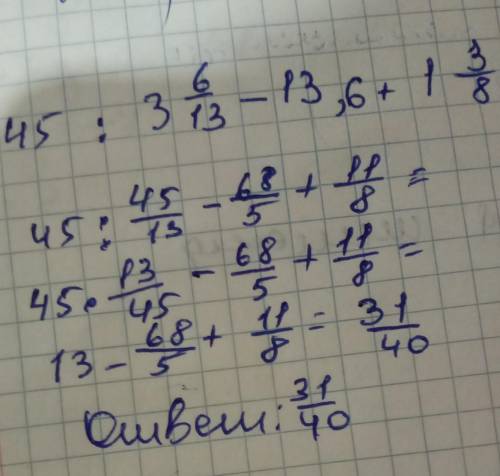 45 : 3 6/13 - 13,6 + 1 3/8
45 : 45/13 - 68/5 + 11/8 =
45 · 13/45 - 68/5 + 11/8 =
13 - 68/5 + 11/8 = 31/40
Ответ: 31/40